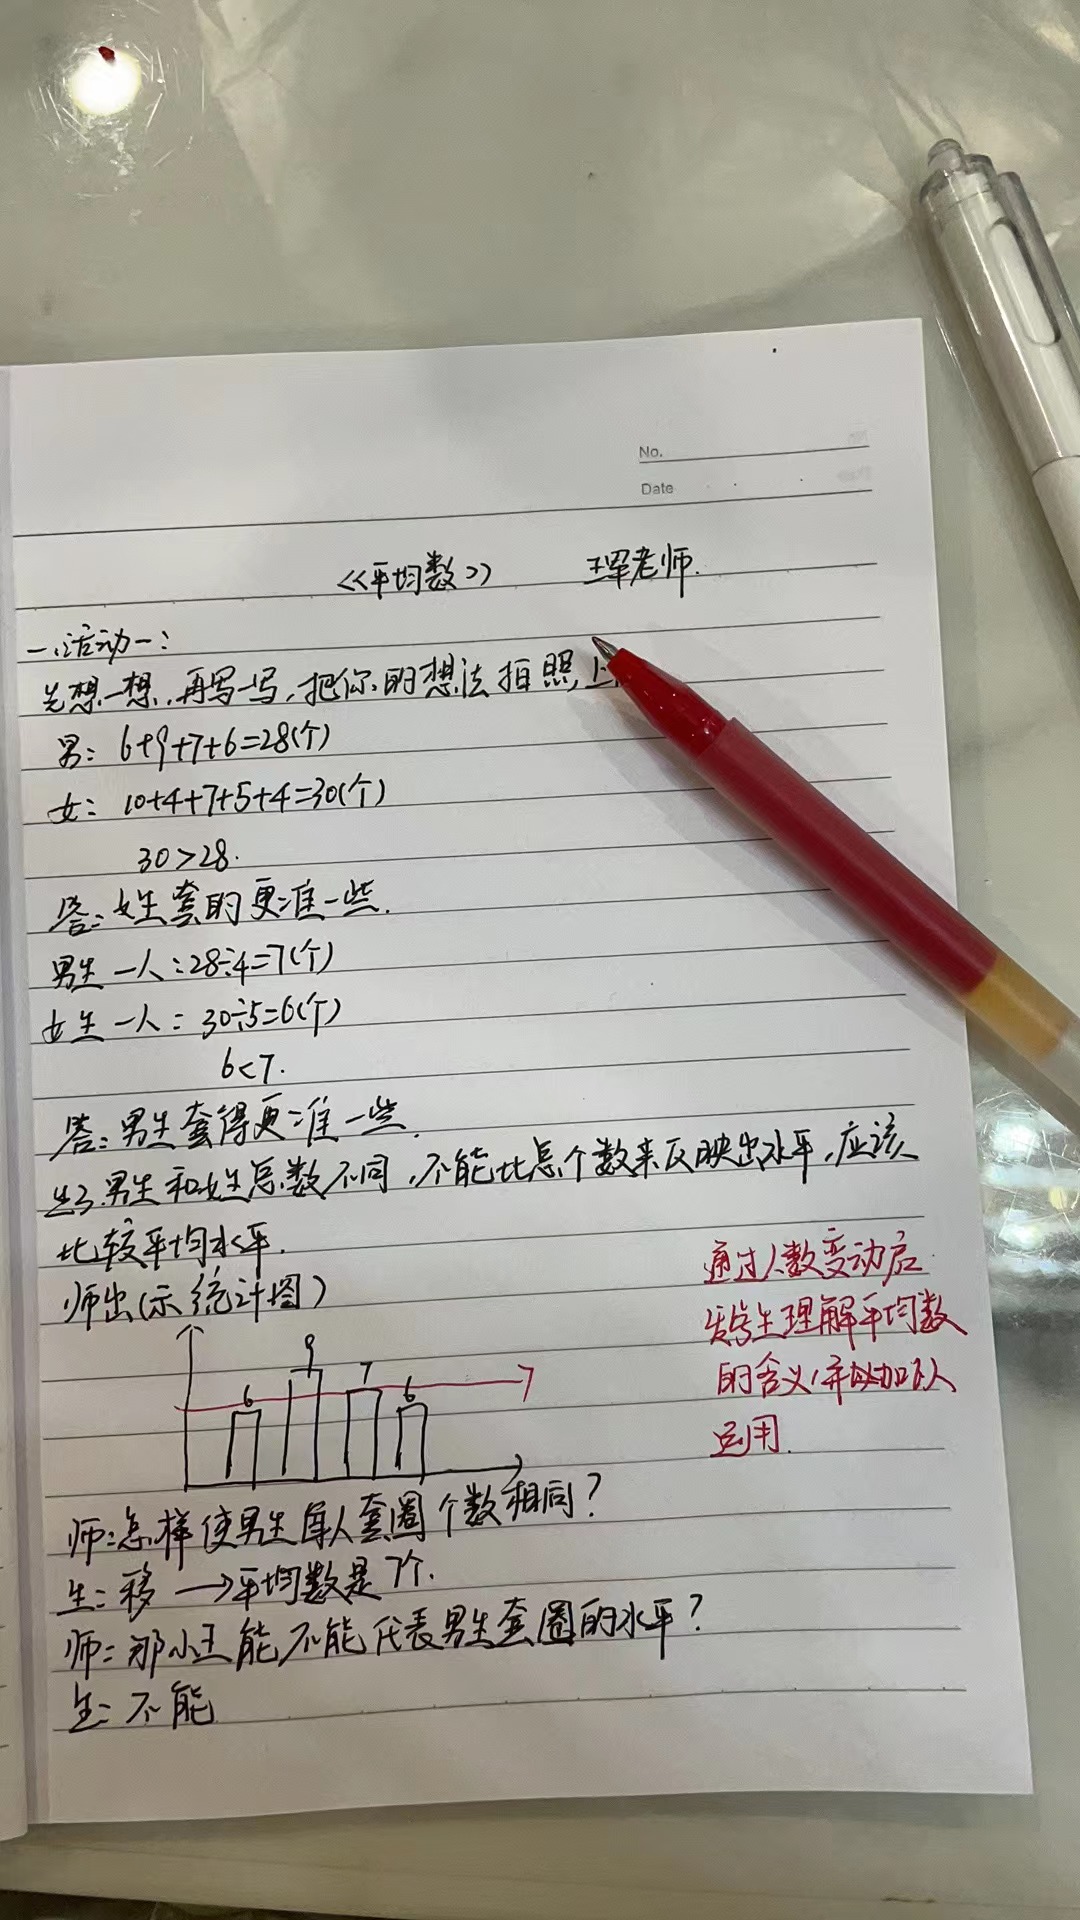 No.
Date
《平均数》 老师.
一、活动一:
先想一想,再写一写,把你的想法拍照上
男: 6+9+7+6=28(个)
女: 10+4+7+5+4=30(个)
30>28.
答:女生套的更准一些.
男生一人:28÷4=7(个)
女生一人: 30÷5=6(个)
6<7.
答:男生套得更准一些.
生3.男生和女生总数不同,不能比总个数来反映出水平,应该
比较平均水平.
师出(示统计图)
9
7
6
6
7
通过人数变动后
学生理解平均数
的含义,并以加以
运用.
师:怎样使男生每人套圈个数相同?
生:移→平均数是7个.
师:那小王能不能代表男生套圈的水平?
生:不能